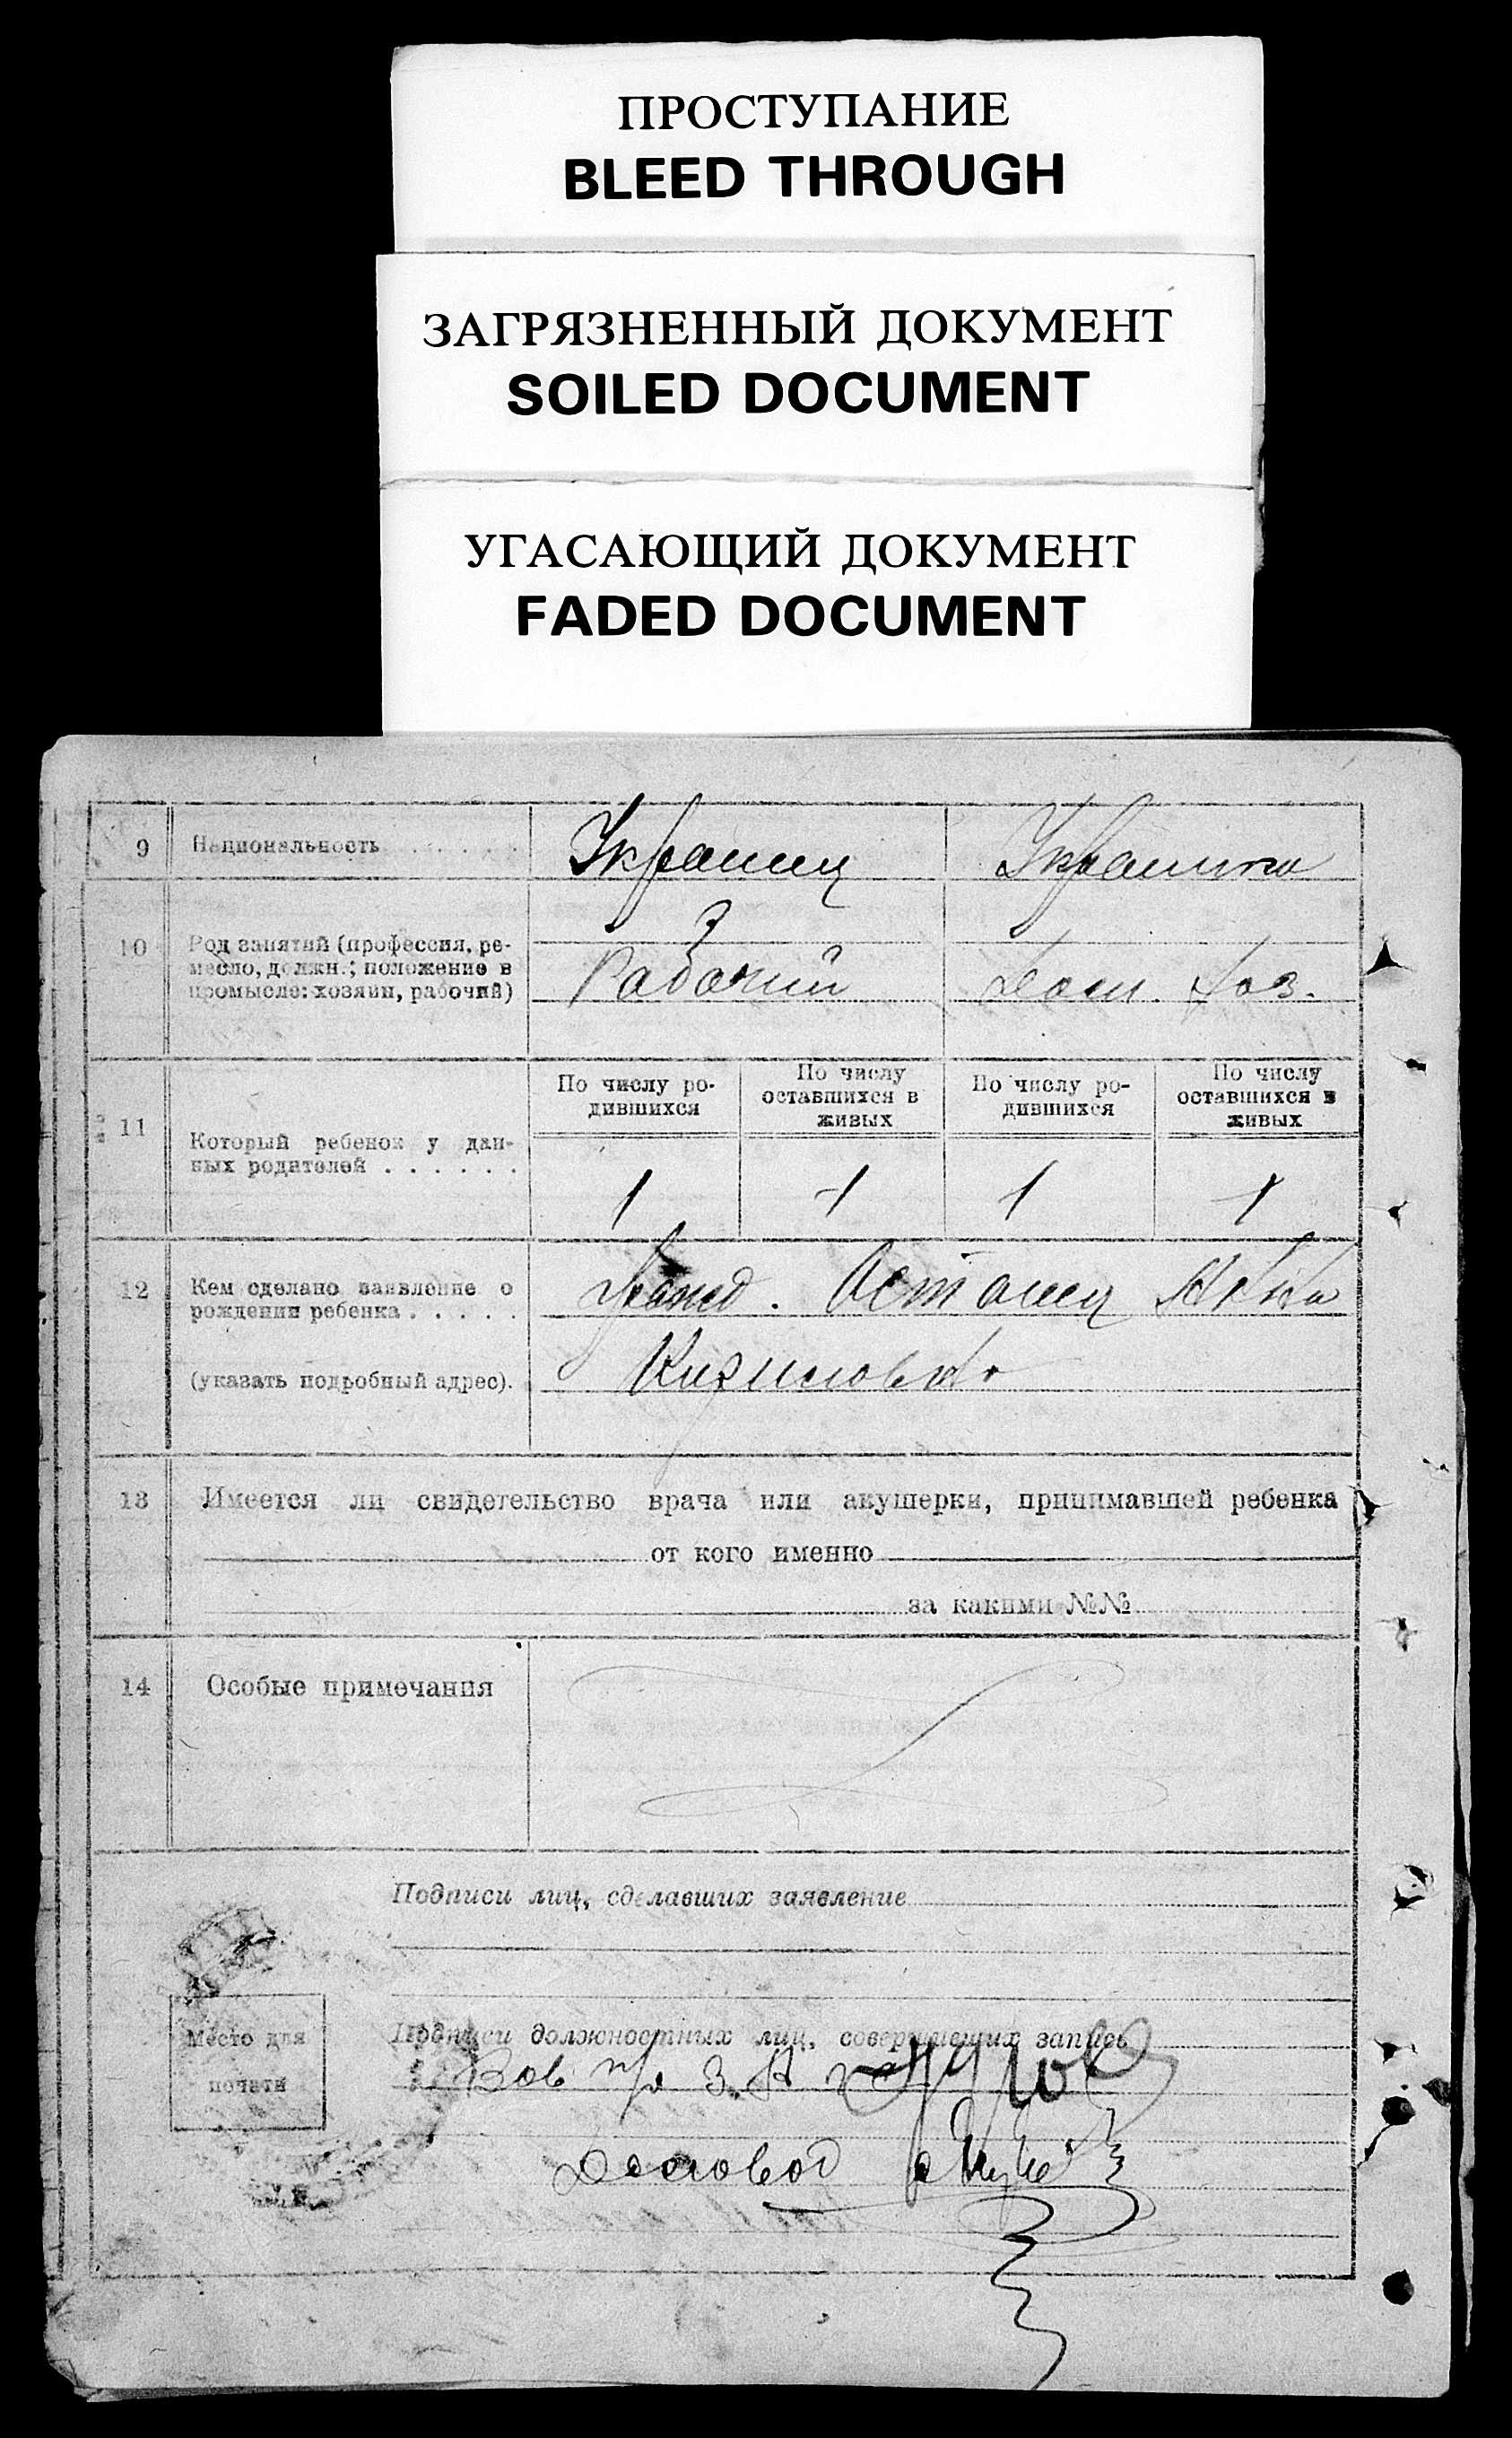 ПРОСТУПАНИЕ
BLEED THROUGH
ЗАГРЯЗНЕННЫЙ ДОКУМЕНТ
SOILED DOCUMENT
УГАСАЮЩИЙ ДОКУМЕНТ
FADED DOCUMENT
9 Национальность . . . . . . Украинец Украинка
10 Род занятий (профессия, ре-
месло, должн.; положение в
промысле: хозяин, рабочий) Рабочий Дом. хоз.
По числу ро-
дившихся
По числу
оставшихся в
живых
По числу ро-
дившихся
По числу
оставшихся в
живых
11 Который ребенок у дан-
ных родителей . . . . . . 1 1 1 1
12 Кем сделано заявление о
рождении ребенка . . . . .
(указать подробный адрес).
13 Имеется ли свидетельство врача или акушерки, принимавшей ребенка
от кого именно
за какими №№
14 Особые примечания
Подписи лиц, сделавших заявление
Место для
печати
Подписи должностных лиц, совершивших запись
Зав п/о З.А